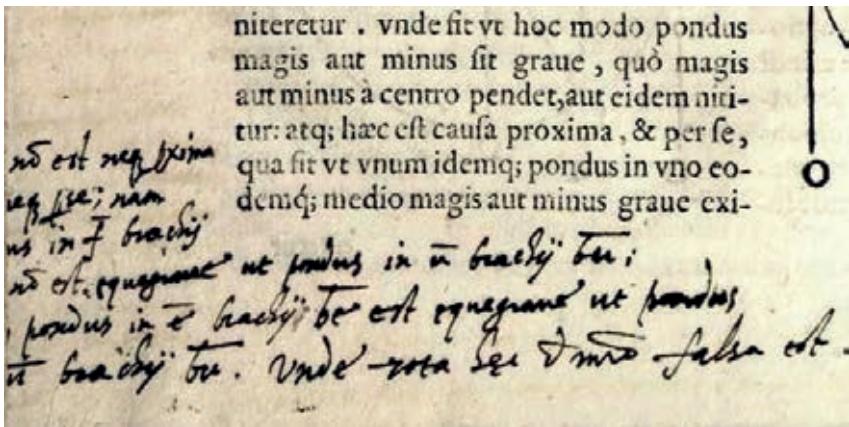 niteretur . vnde fit vt hoc modo pondus
magis aut minus sit graue , quò magis
aut minus à centro pendet, aut eidem niti-
tur: atq; hæc est causa proxima , & per se,
qua fit vt vnum idemq; pondus in vno eo-
demq́; medio magis aut minus graue exi-
O
nō est neq pxima
neq pse; nam
us in f̄ brachij
nō est equegraue ut pondus in ū brachij b̄u;
pondus in ē brachij b̄e est equegraue ut pondus
ū brachij b̄u . Vnde tota hęc falsa est .